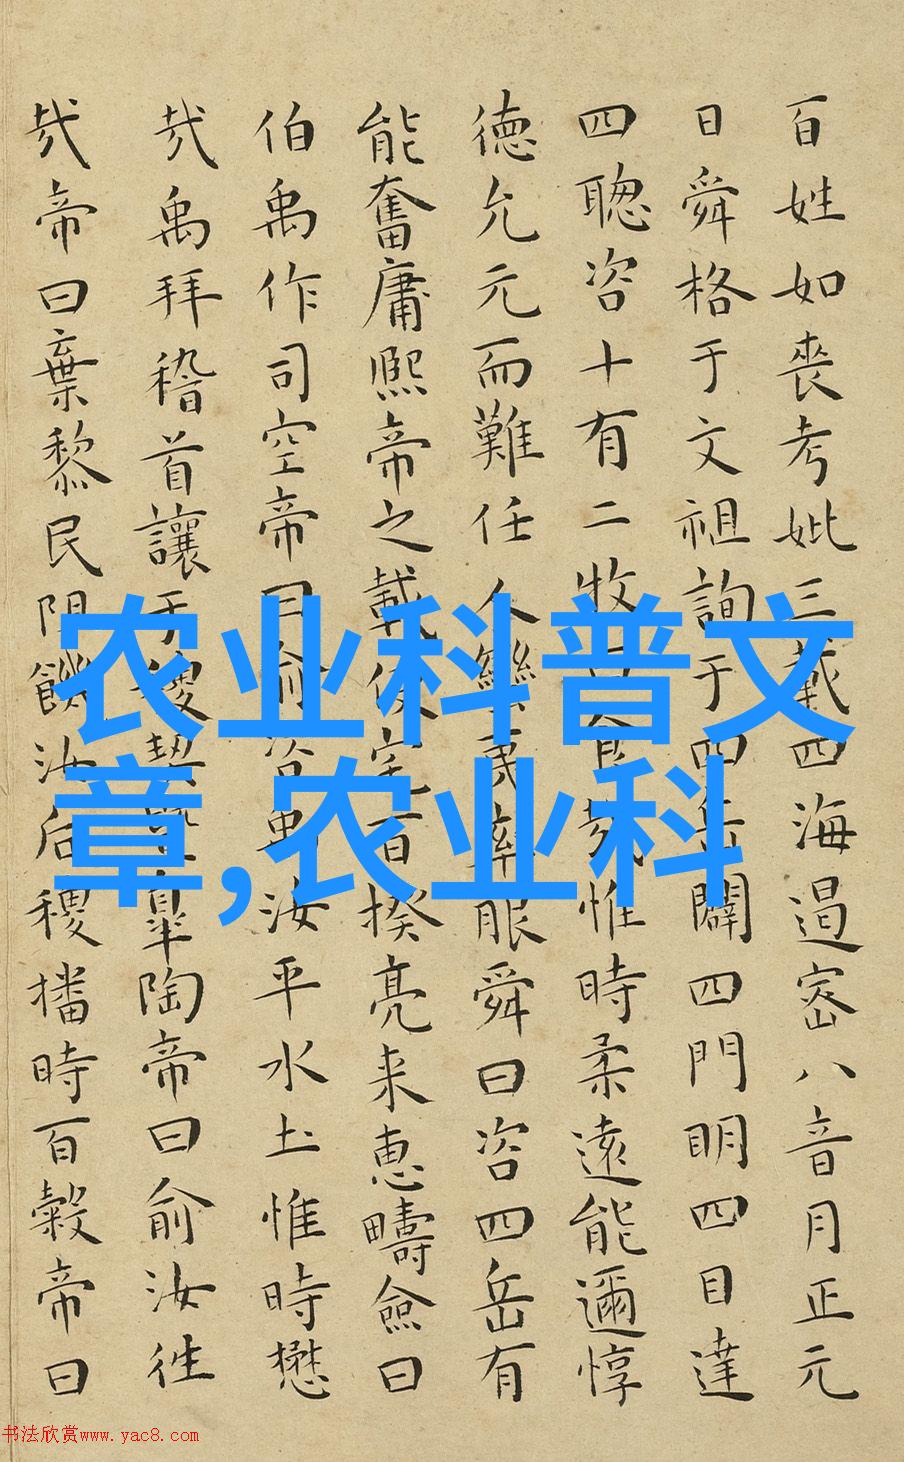 百姓如喪考妣三載四海遏密八音月正元
日舜格于文祖詢于四岳闢四門明四目達
四聰咨十有二牧曰食哉惟時柔遠能邇惇
德允元而難任人蠻夷率服舜曰咨四岳有
能奮庸熙帝之載使宅百揆亮采惠疇僉曰
伯禹作司空帝曰俞咨禹汝平水土惟時懋
哉禹拜稽首讓于稷契暨皋陶帝曰俞汝往
哉帝曰棄黎民阻飢汝后稷播時百穀帝曰
农业科普文
章,农业科
书法欣赏www.yac8.com